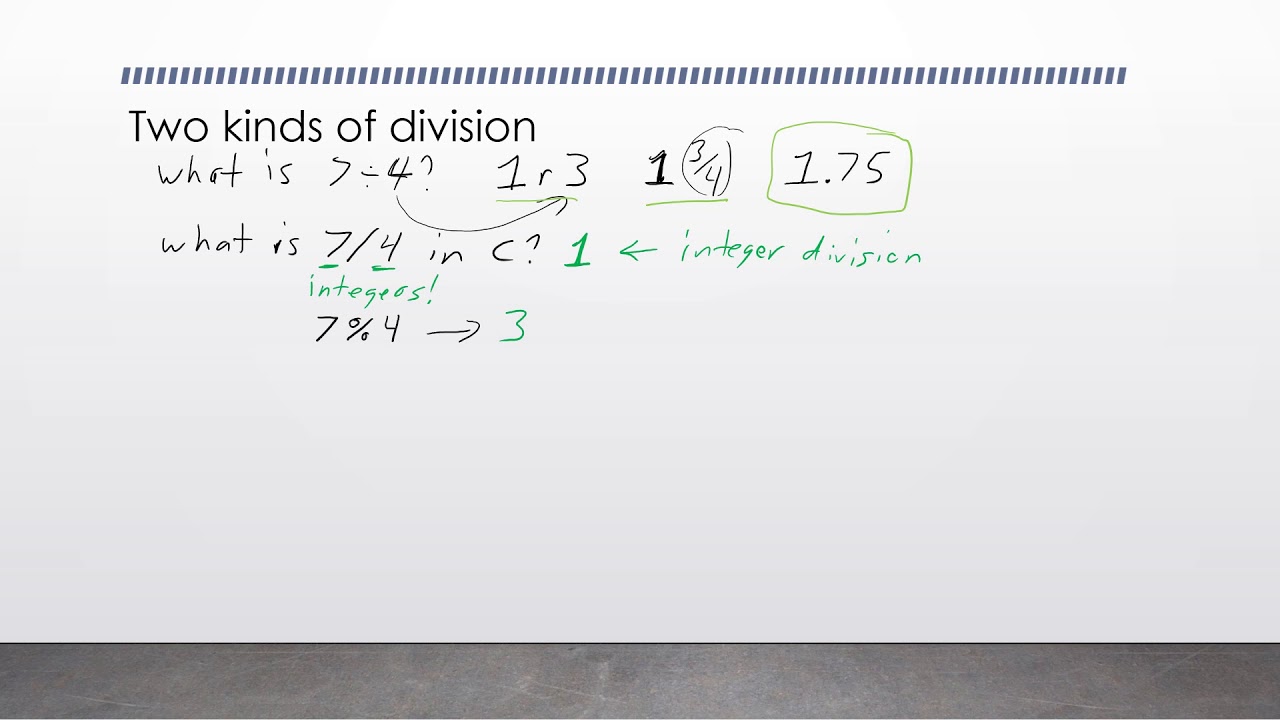 Two kinds of division
what is 7÷4? 1 r 3 1 3/4 1.75
what is 7/4 in C? 1 ← integer division
integers!
7%4 → 3